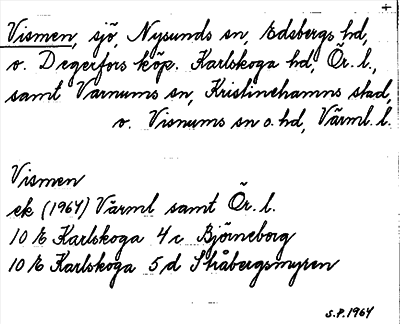 Vismen, sjö, Nysunds sn, Edsbergs hd,
o. Degerfors köp. Karlskoga hd, Ör. l.,
samt Varnums sn, Kristinehamns stad,
o. Visnums sn o. hd, Värml. l.
Vismen
ek (1964) Värml samt Ör. l.
10 E Karlskoga 4 c Björneborg
10 E Karlskoga 5 d Skåbergsmyren
S.P. 1964